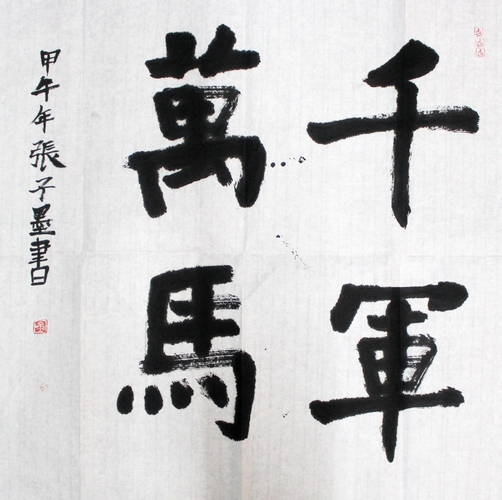 千軍
萬馬
甲午年張子墨書